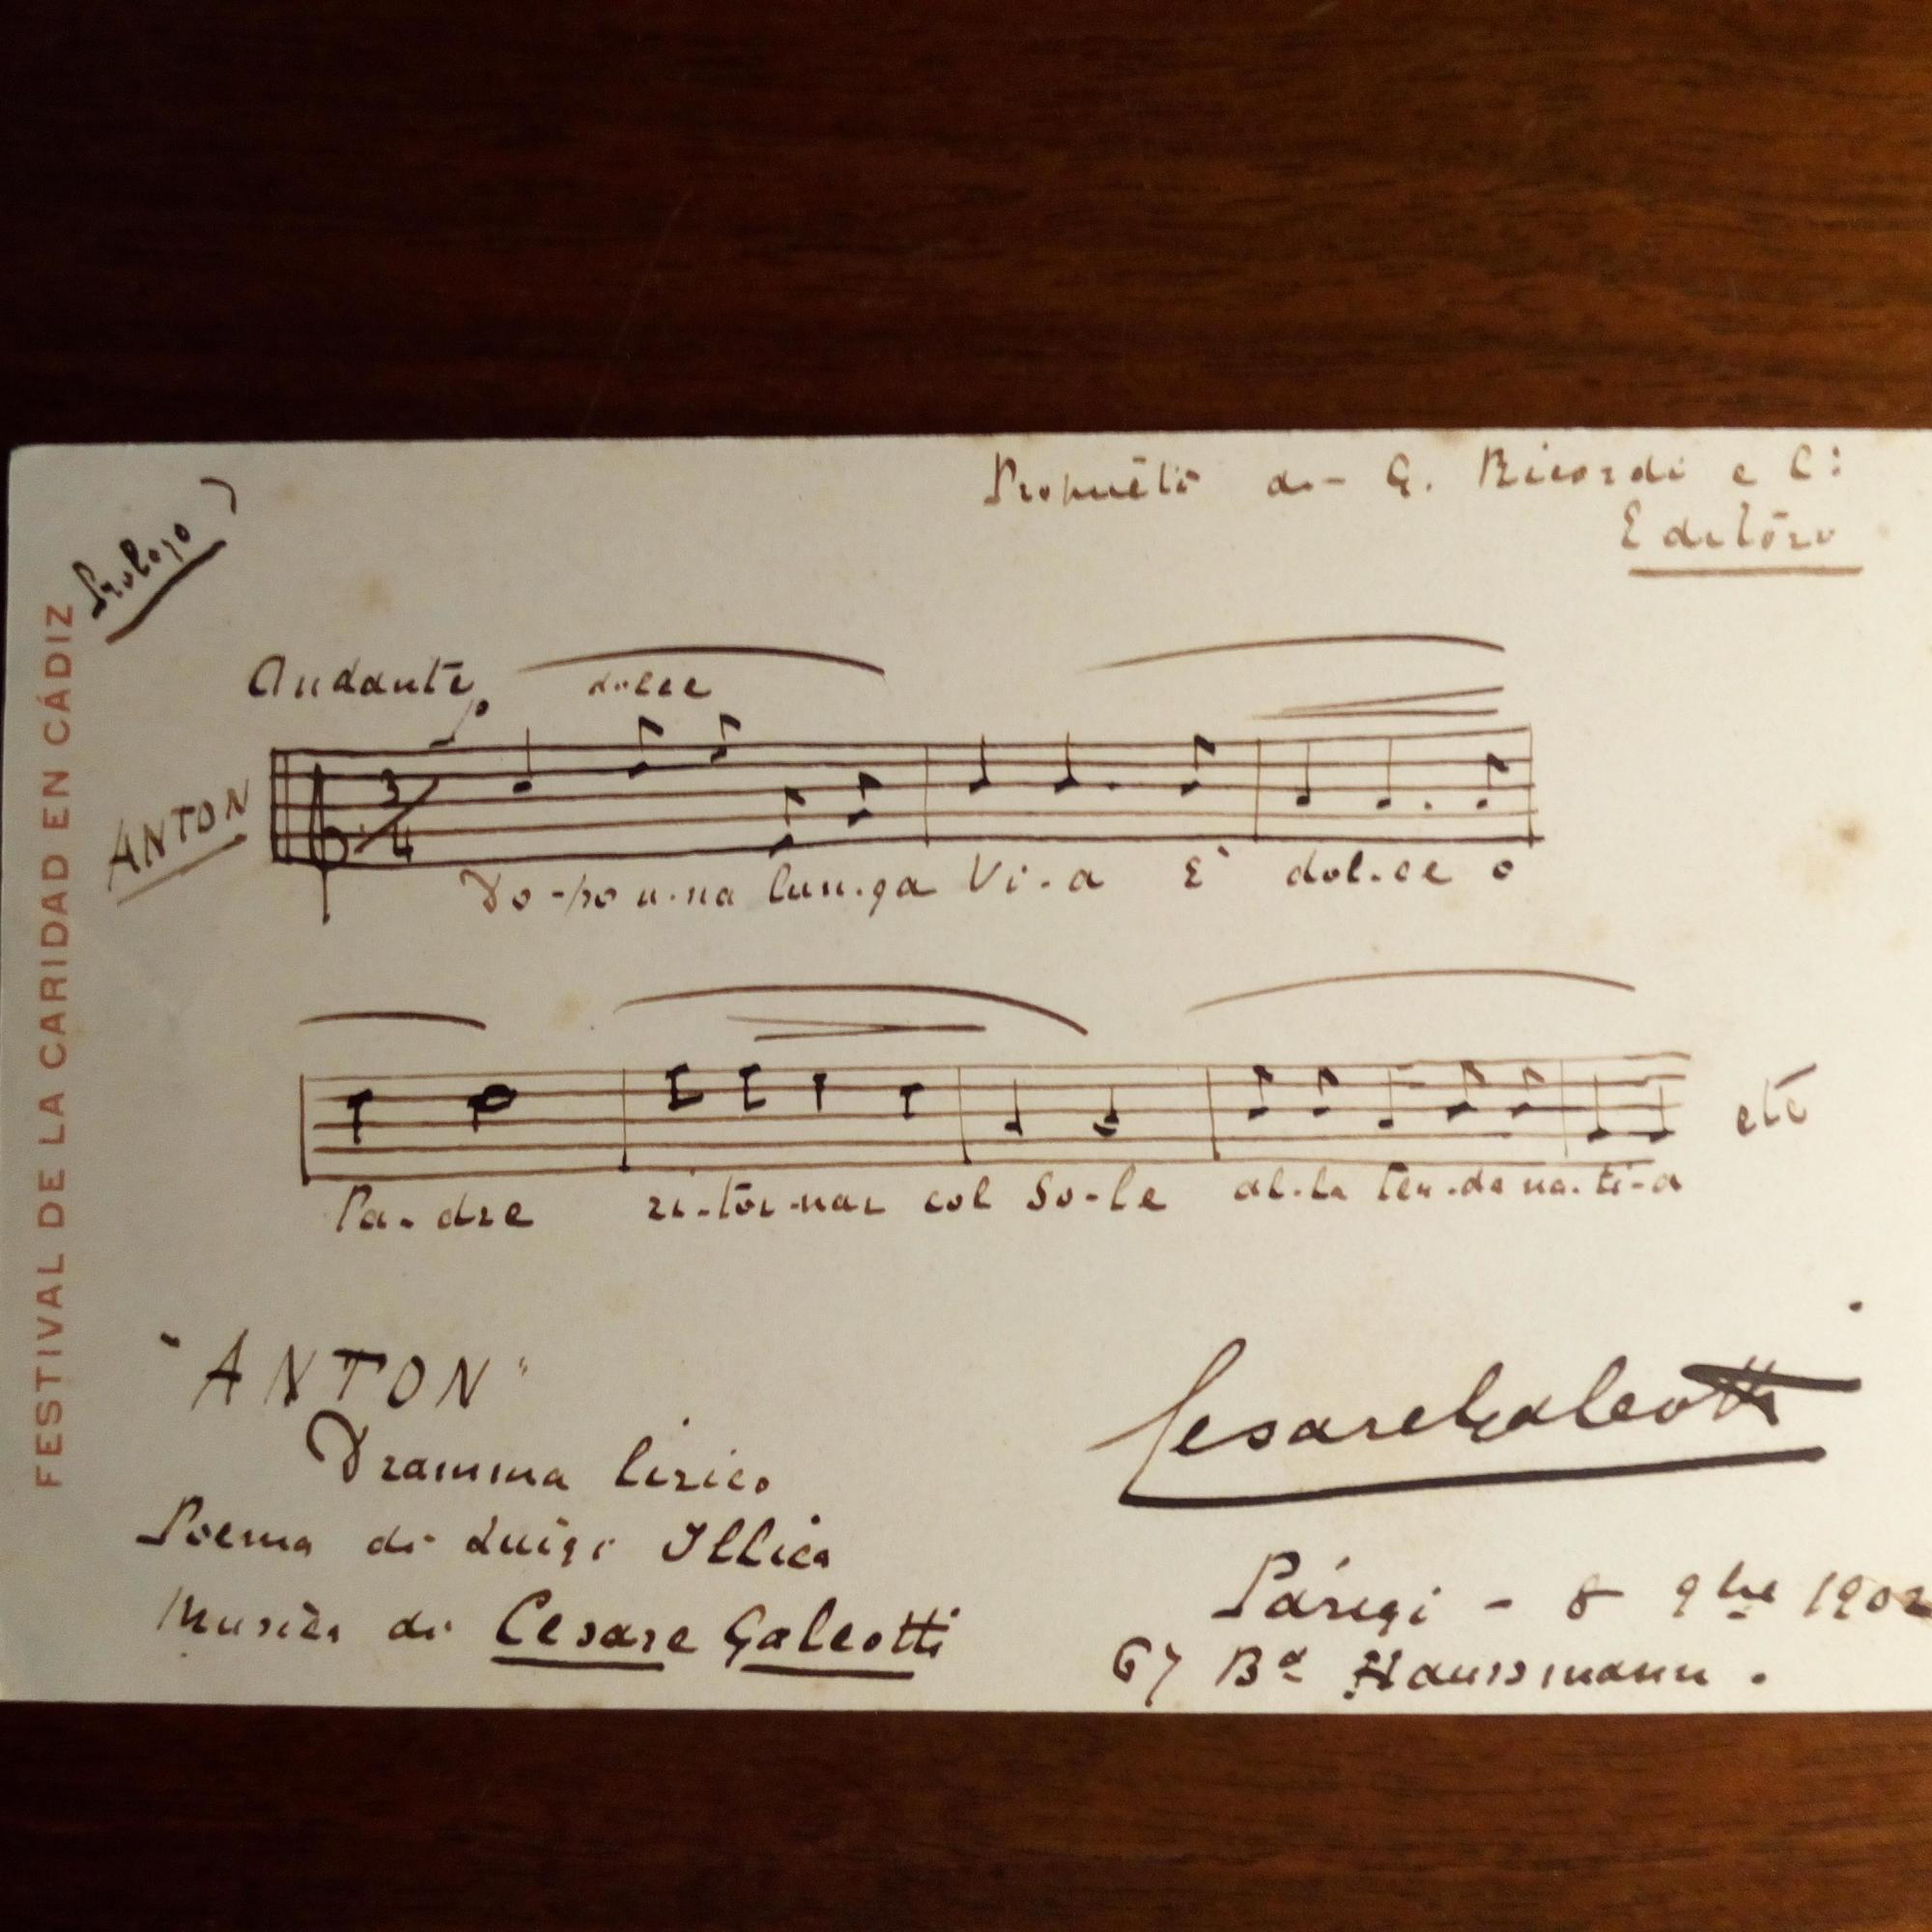 Proprietà di G. Ricordi e C:
Editore
Prologo
FESTIVAL DE LA CARIDAD EN CÁDIZ
Andante dolce
ANTON
3
4
Do-po u-na lun-ga Vi-a È dol-ce o
Pa-dre ri-tor-nar col So-le al-la ten-da na-ti-a etc
"ANTON"
Dramma lirico
Poema di Luigi Illica
Musica di Cesare Galeotti
Cesare Galeotti
Parigi - 8 9bre 1902
67 Bd Haussmann.